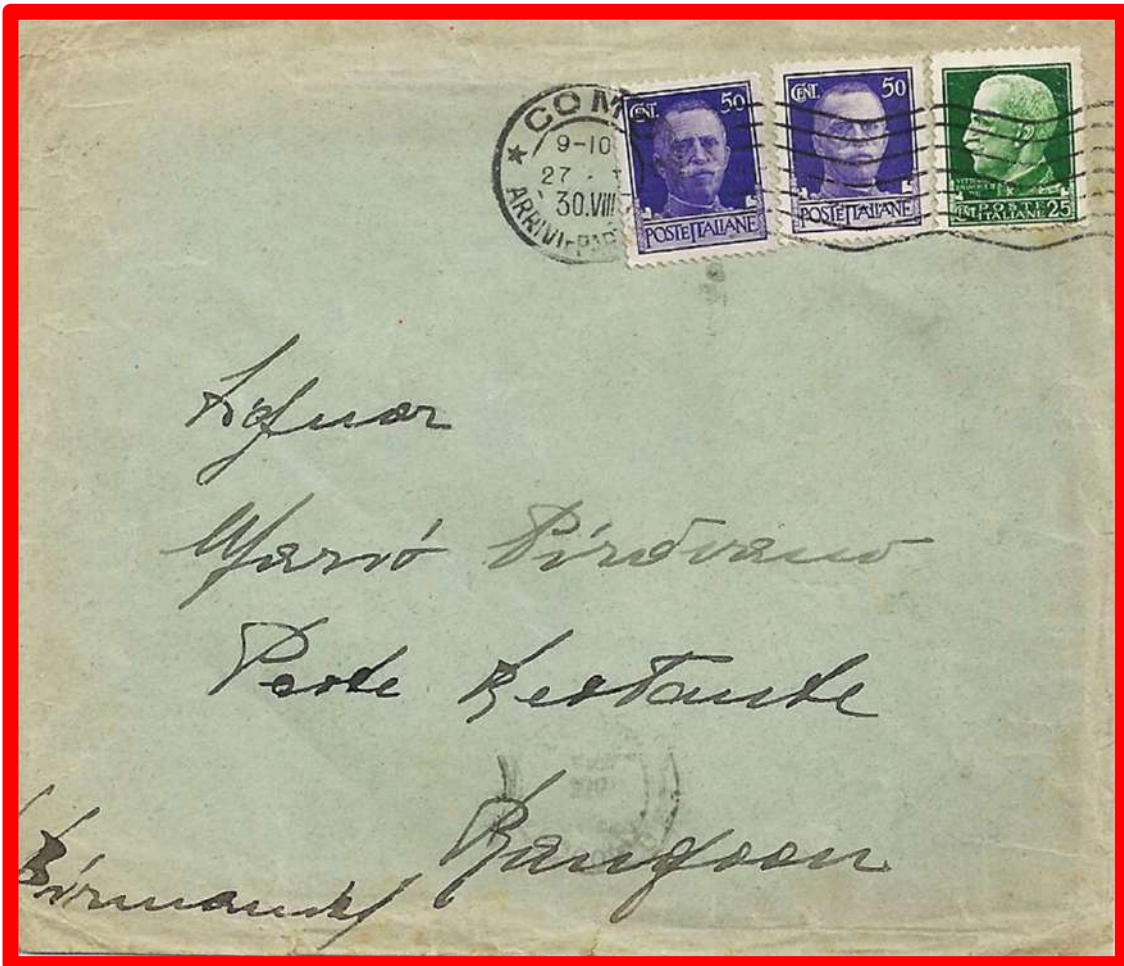 COM
9-10
27
30.VIII
ARRIVI-PAR
CENT. 50
POSTE ITALIANE
CENT. 50
POSTE ITALIANE
CENT. POSTE ITALIANE 25
Signor
Mario Pirovano
Poste Restante
Rangoon